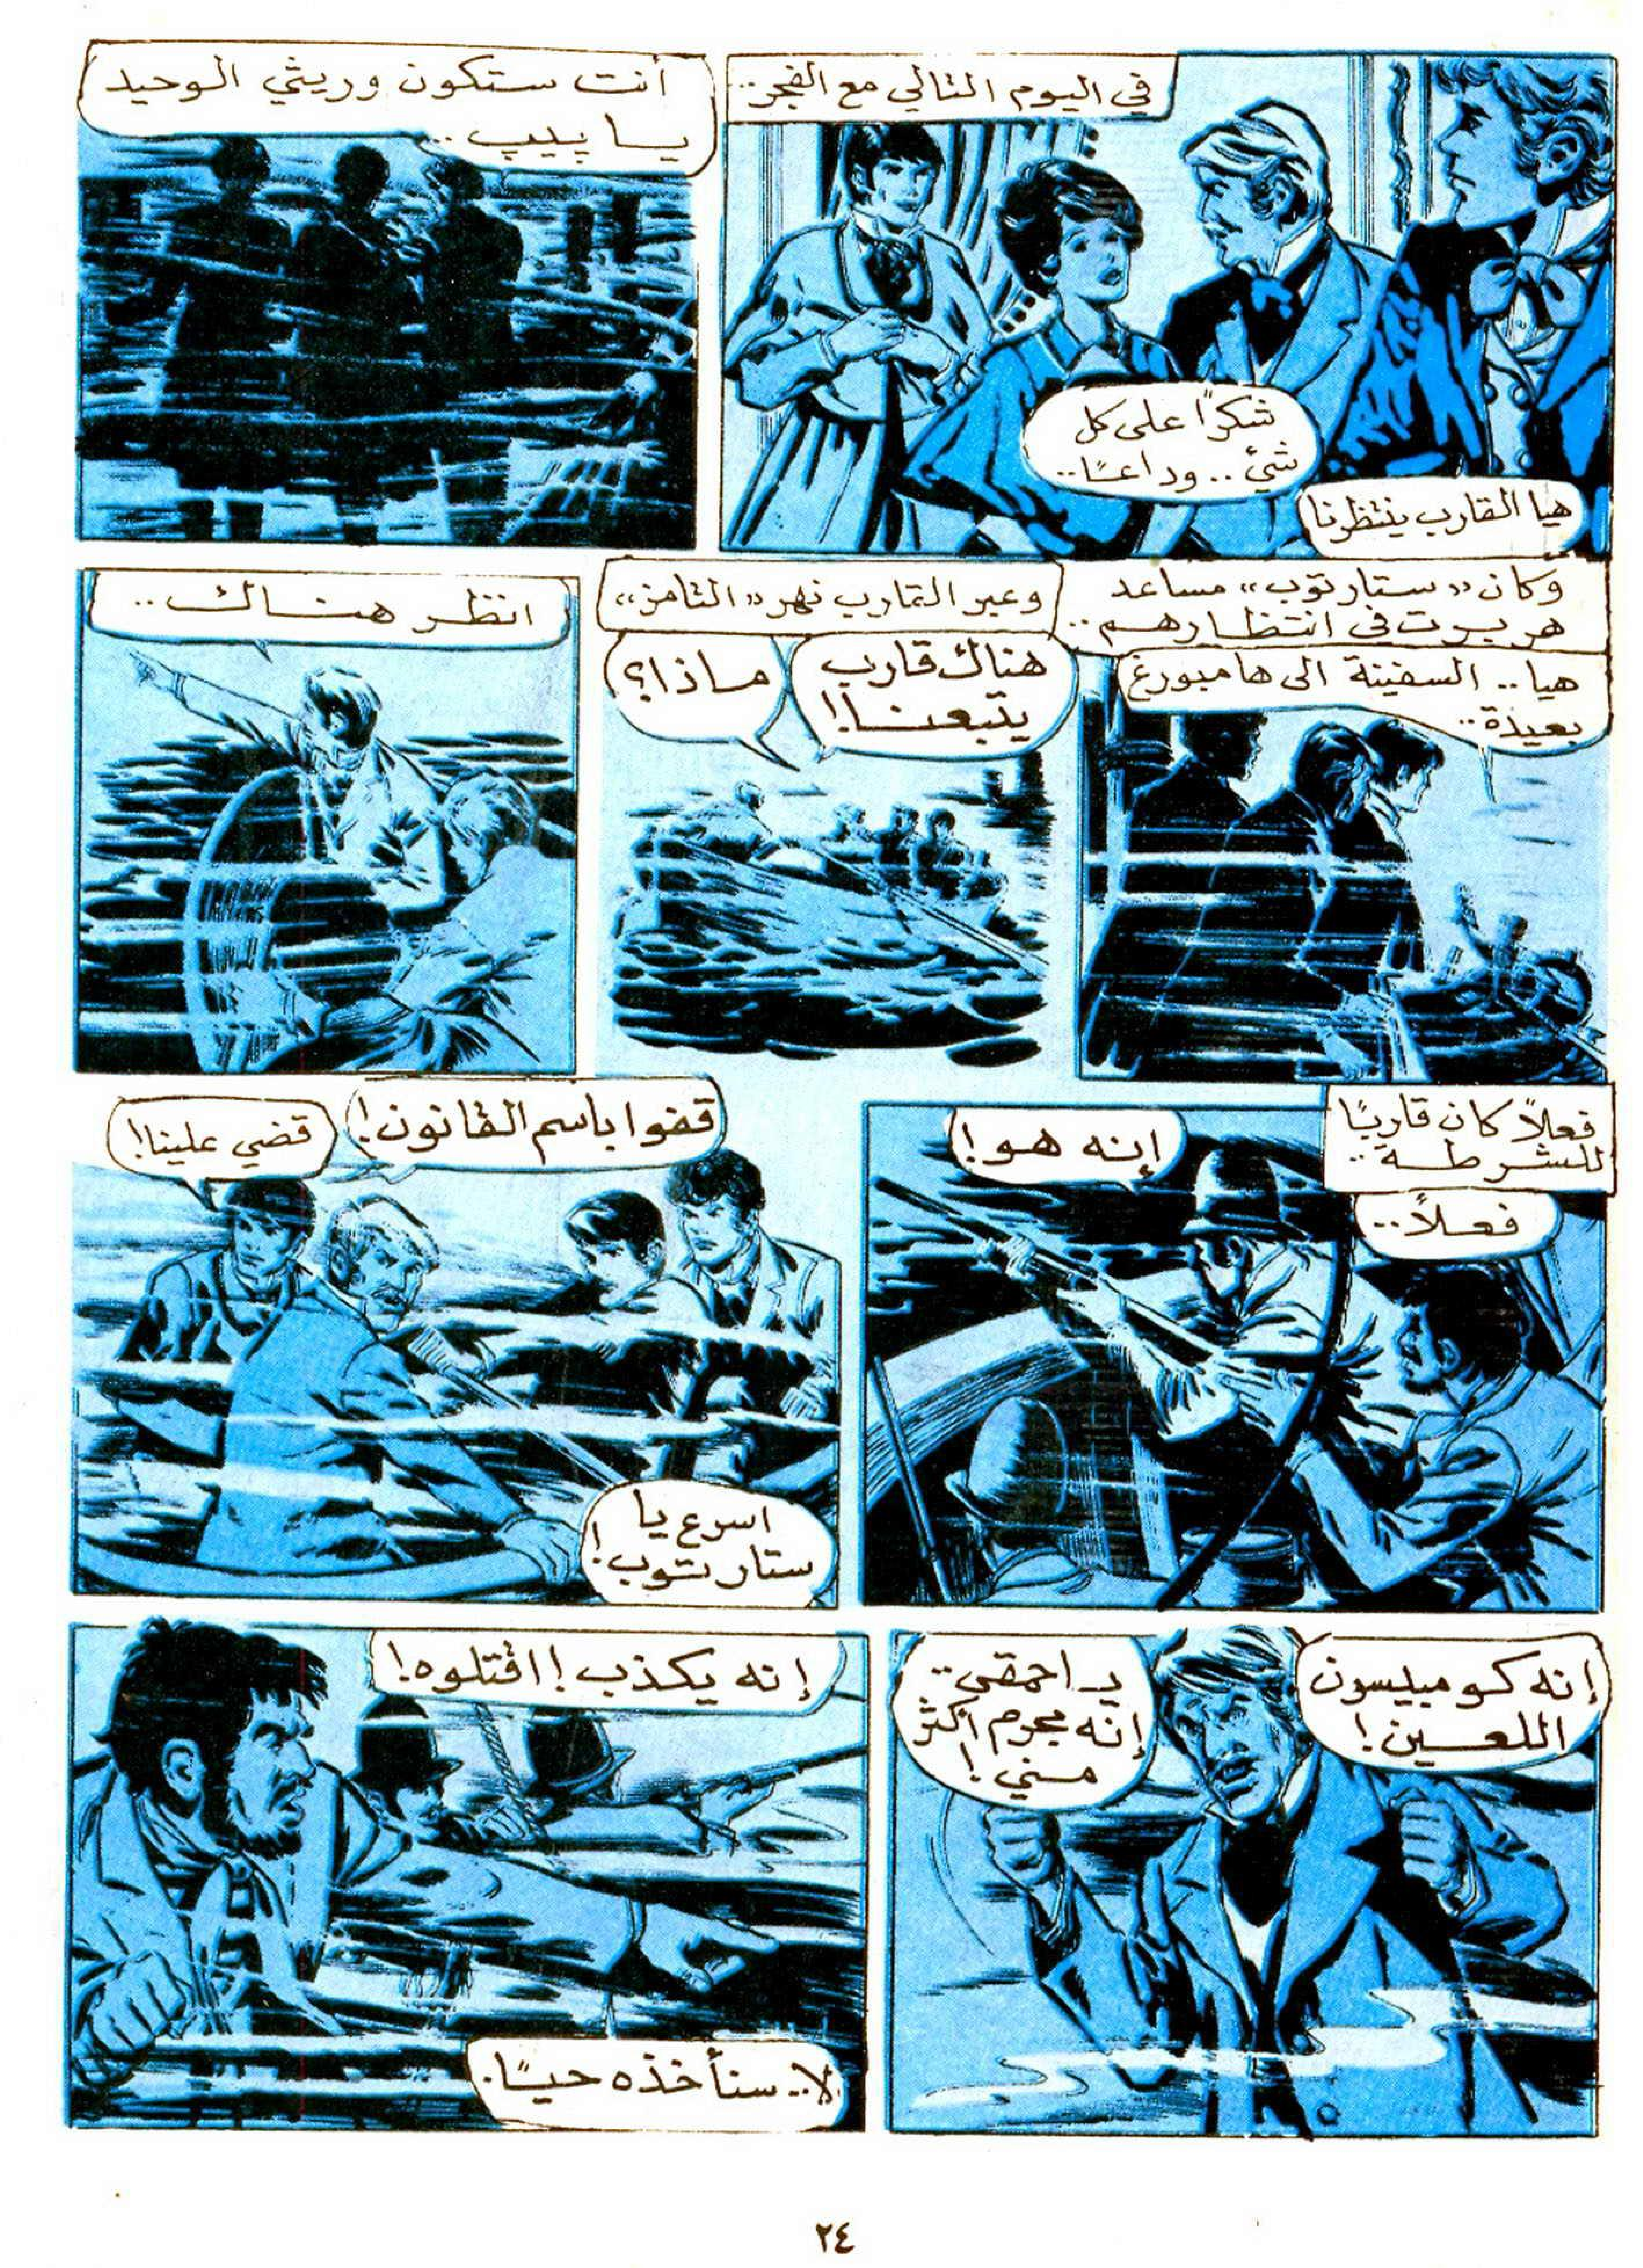 في اليوم التالي مع الفجر..
شكرًا على كل
شئ.. وداعًا..
هيا القارب ينتظرنا
أنت ستكون وريثي الوحيد
يا پيپ..
وكان «ستارتوب» مساعد
هربرت في انتظارهم..
هيا.. السفينة الى هامبورغ
بعيدة..
وعبر القارب نهر «التامز»
هناك قارب
يتبعنا!!
ماذا؟
انظر هناك..
فعلاً كان قاربًا
للشرطة..
إنه هو!
فعلاً..
قفوا باسم القانون!
قضي علينا!
اسرع يا
ستارتوب!
إنه كومبيسون
اللعين!
يا احمقى..
إنه مجرم أكثر
مني!
إنه يكذب! اقتلوه!
لا.. سنأخذه حيًا.
٢٤